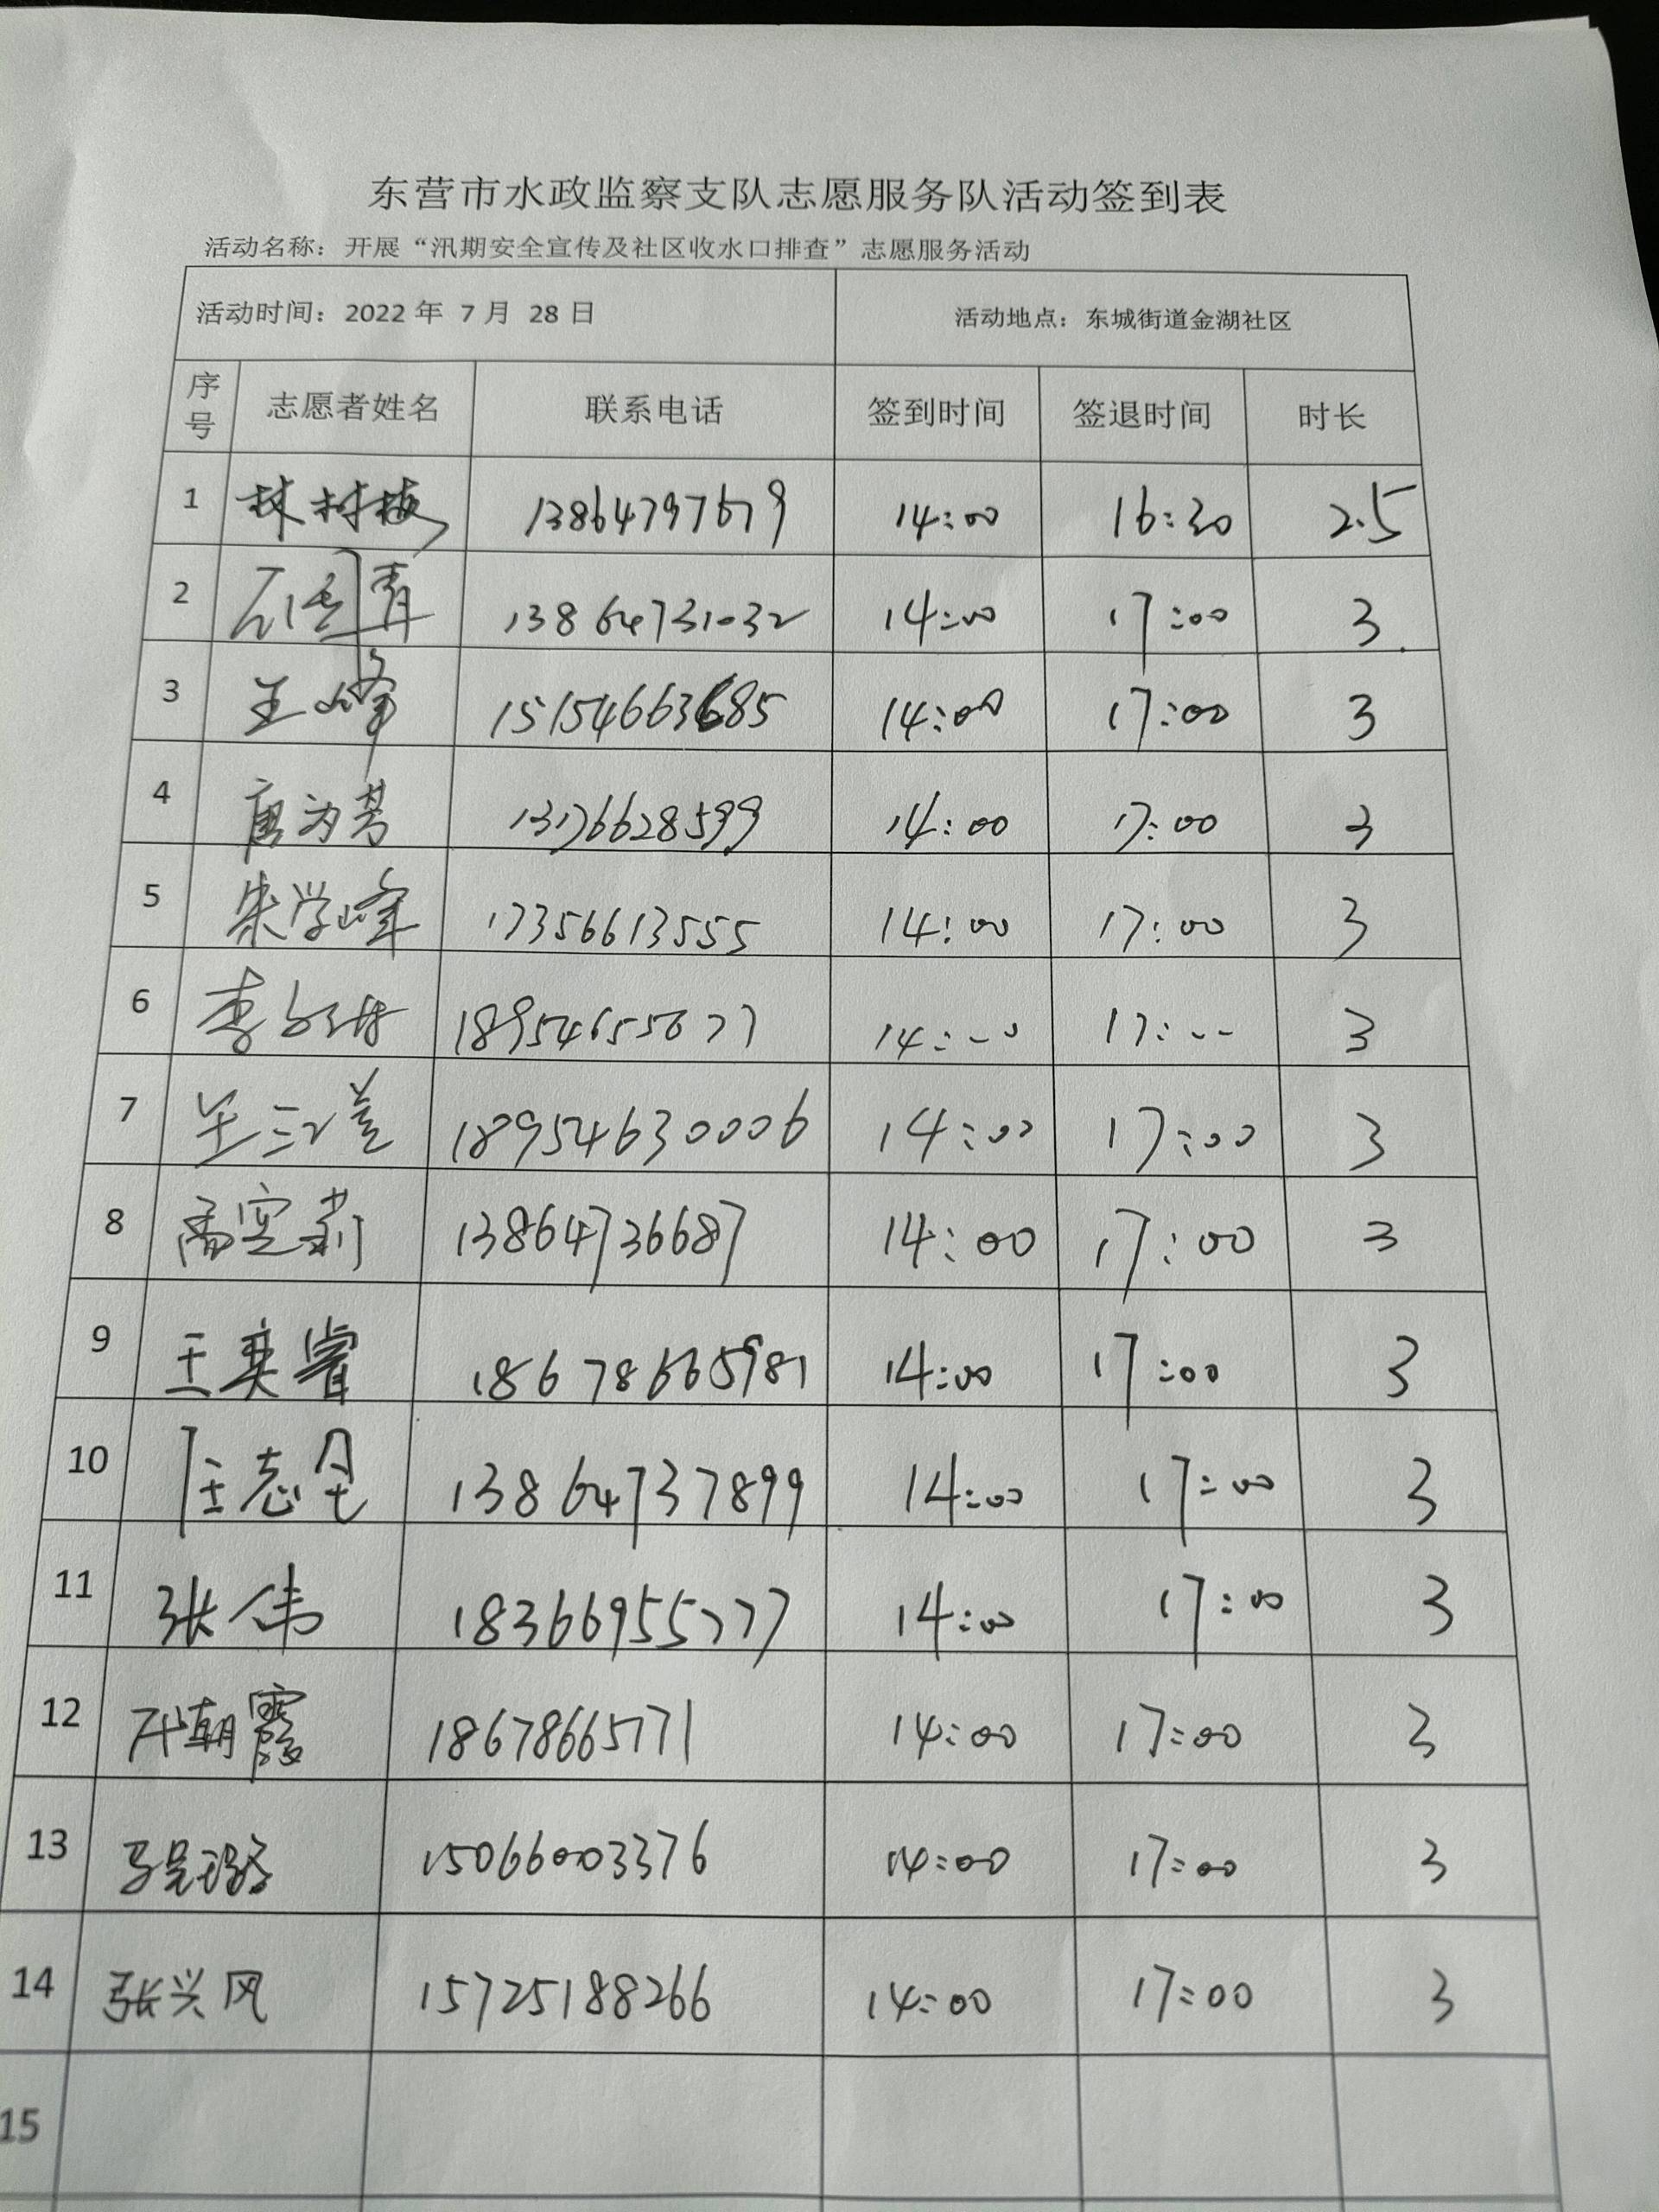 东营市水政监察支队志愿服务队活动签到表
活动名称：开展“汛期安全宣传及社区收水口排查”志愿服务活动
活动时间：2022 年 7 月 28 日 活动地点：东城街道金湖社区
序号 志愿者姓名 联系电话 签到时间 签退时间 时长
1 林树梅 13864797679 14:00 16:30 2.5
2 13864731032 14:00 17:00 3
3 王峰 15154663685 14:00 17:00 3
4 唐为芳 13176628599 14:00 17:00 3
5 朱学峰 17356613555 14:00 17:00 3
6 14:00 17:00 3
7 18954630006 14:00 17:00 3
8 13864736687 14:00 17:00 3
9 王奕睿 18678665981 14:00 17:00 3
10 任志全 13864737899 14:00 17:00 3
11 张伟 18366955777 14:00 17:00 3
12 18678665771 14:00 17:00 3
13 15066003376 14:00 17:00 3
14 张兴风 15725188266 14:00 17:00 3
15